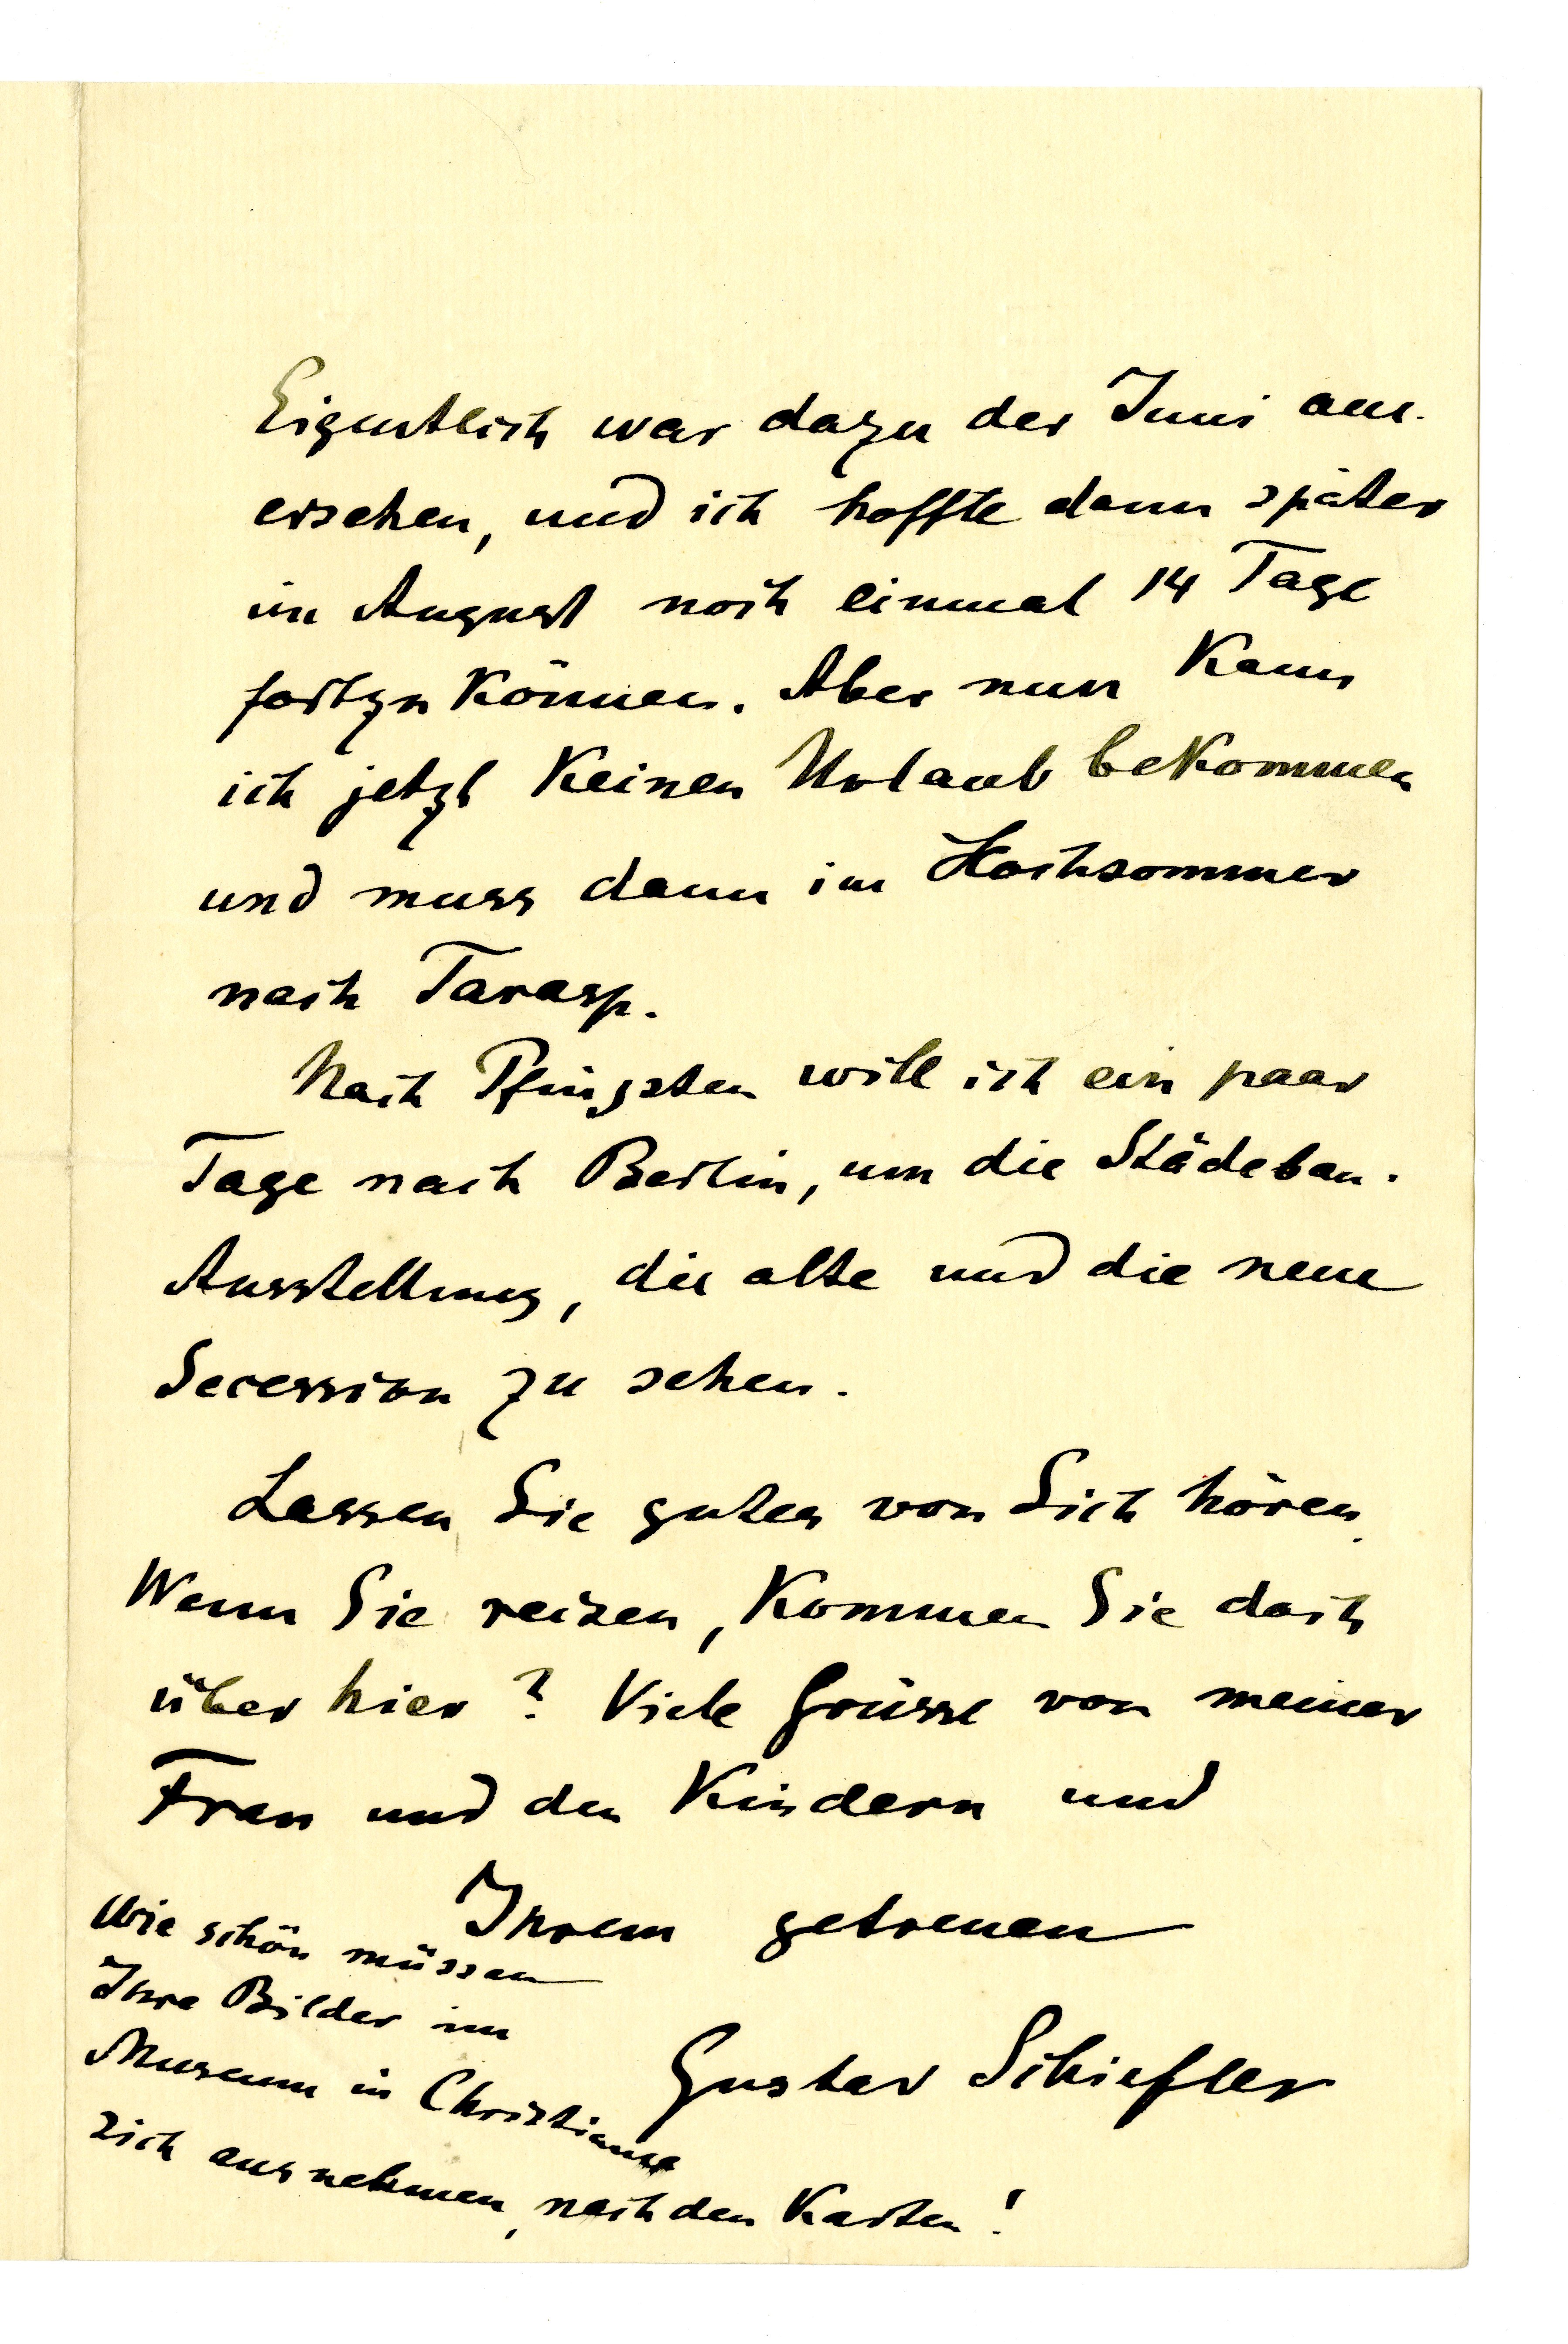 Eigentlich war dazu der Juni aus-
ersehen, und ich hoffte dann später
im August noch einmal 14 Tage
fortzu können. Aber nun kann
ich jetzt keinen Urlaub bekommen
und muss dann im Hochsommer
nach Tarasp.
Nach Pfingsten will ich ein paar
Tage nach Berlin, um die Städebau-
Ausstellung, die alte und die neue
Secession zu sehen.
Lassen Sie gutes von Sich hören.
Wenn Sie reisen, kommen Sie doch
über hier? Viele Grüsse von meiner
Frau und den Kindern und
Ihrem getreuen
Gustav Schiefler
Wie schön müssen
Ihre Bilder im
Museum in Christiania
sich ausnehmen, nach den Karten!